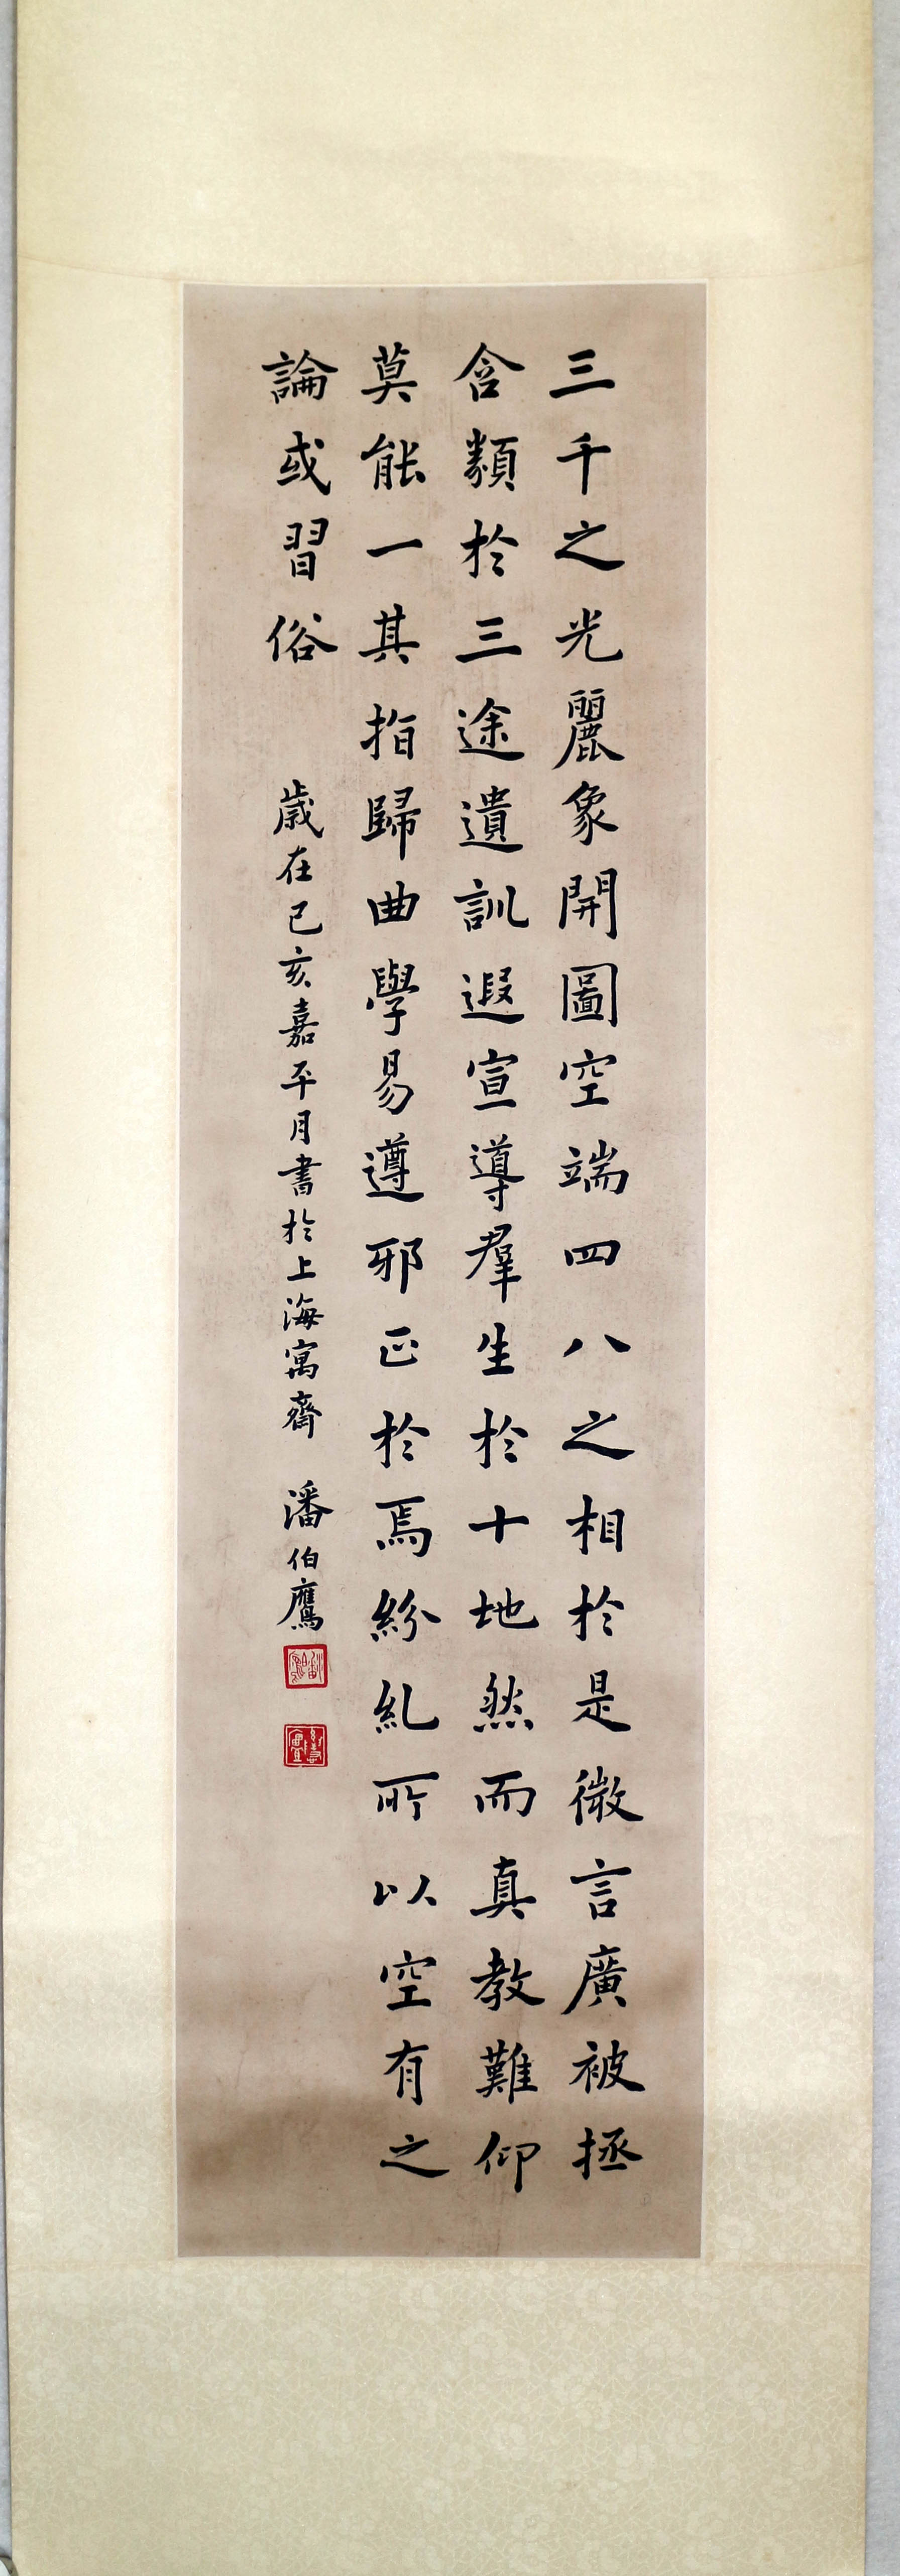 三千之光麗象開圖空端四八之相於是微言廣被拯
含類於三途遺訓遐宣導羣生於十地然而真教難仰
莫能一其指歸曲學易遵邪正於焉紛糺所以空有之
論或習俗
歲在己亥嘉平月書於上海寓齋 潘伯鷹